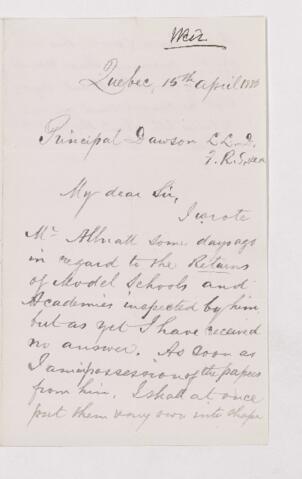 Weir
Quebec, 15th April 1880
Principal Dawson L L. D.
F. R. S, &c &c
My dear Sir,
I wrote
Mr. Albutt some days ago
in regard to the Returns
of Model Schools and
Academies inspected by him,
but as yet I have received
no answer. As soon as
I am in possession of the papers
from him, I shall at once
put them very soon into shape